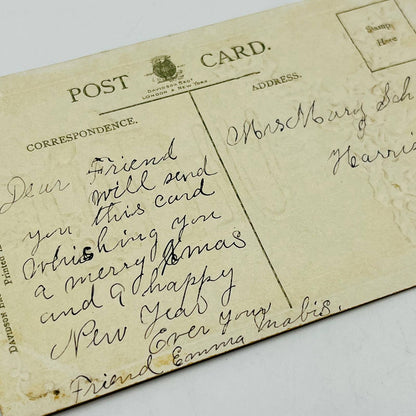 POST CARD.
DAVIDSON BROS
LONDON & NEW YORK
Stamp
Here
CORRESPONDENCE.
ADDRESS.
Dear Friend
will send
you this card
whishing you
a merry Xmas
and a happy
New Year
Ever your
Friend Emma Mabis.
Mrs Mary Sch
Harris
DAVIDSON BROS. Printed in